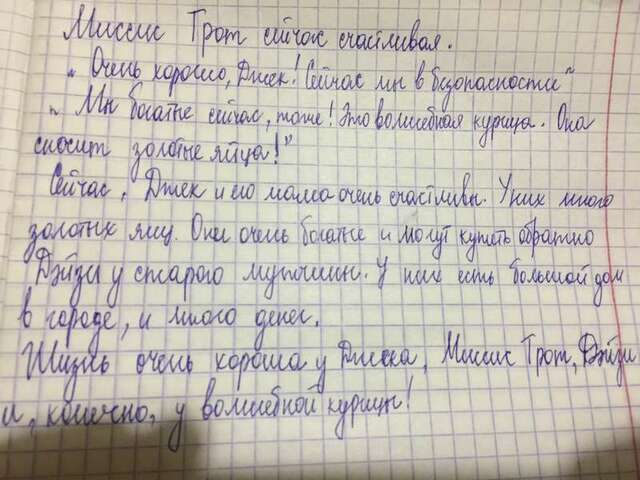 Миссис Трот сейчас счастливая.
"Очень хорошо, Джек! Сейчас мы в безопасности"
"Мы богатые сейчас, тоже! Это волшебная курица. Она
сносит золотые яйца!"
Сейчас, Джек и его мама очень счастливы. У них много
золотых яиц. Они очень богатые и могут купить обратно
Дэйзи у старого мужчины. У них есть большой дом
в городе, и много денег.
Жизнь очень хороша у Джека, Миссис Трот, Дэйзи
и, конечно, у волшебной курицы!